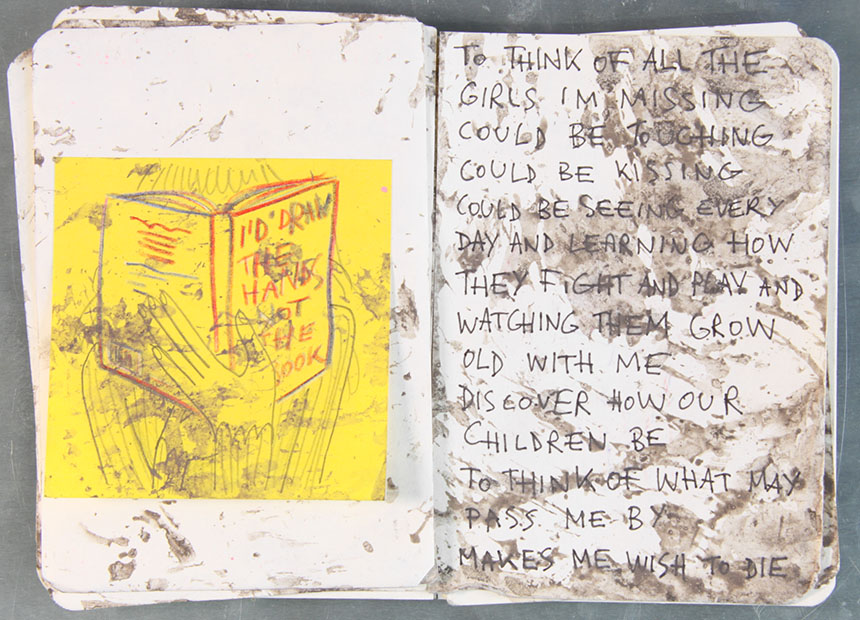 I'D DRAW
THE
HANDS
NOT
THE
BOOK
TO THINK OF ALL THE
GIRLS IM MISSING
COULD BE TOUCHING
COULD BE KISSING
COULD BE SEEING EVERY
DAY AND LEARNING HOW
THEY FIGHT AND PLAY AND
WATCHING THEM GROW
OLD WITH ME
DISCOVER HOW OUR
CHILDREN BE
TO THINK OF WHAT MAY
PASS ME BY
MAKES ME WISH TO DIE